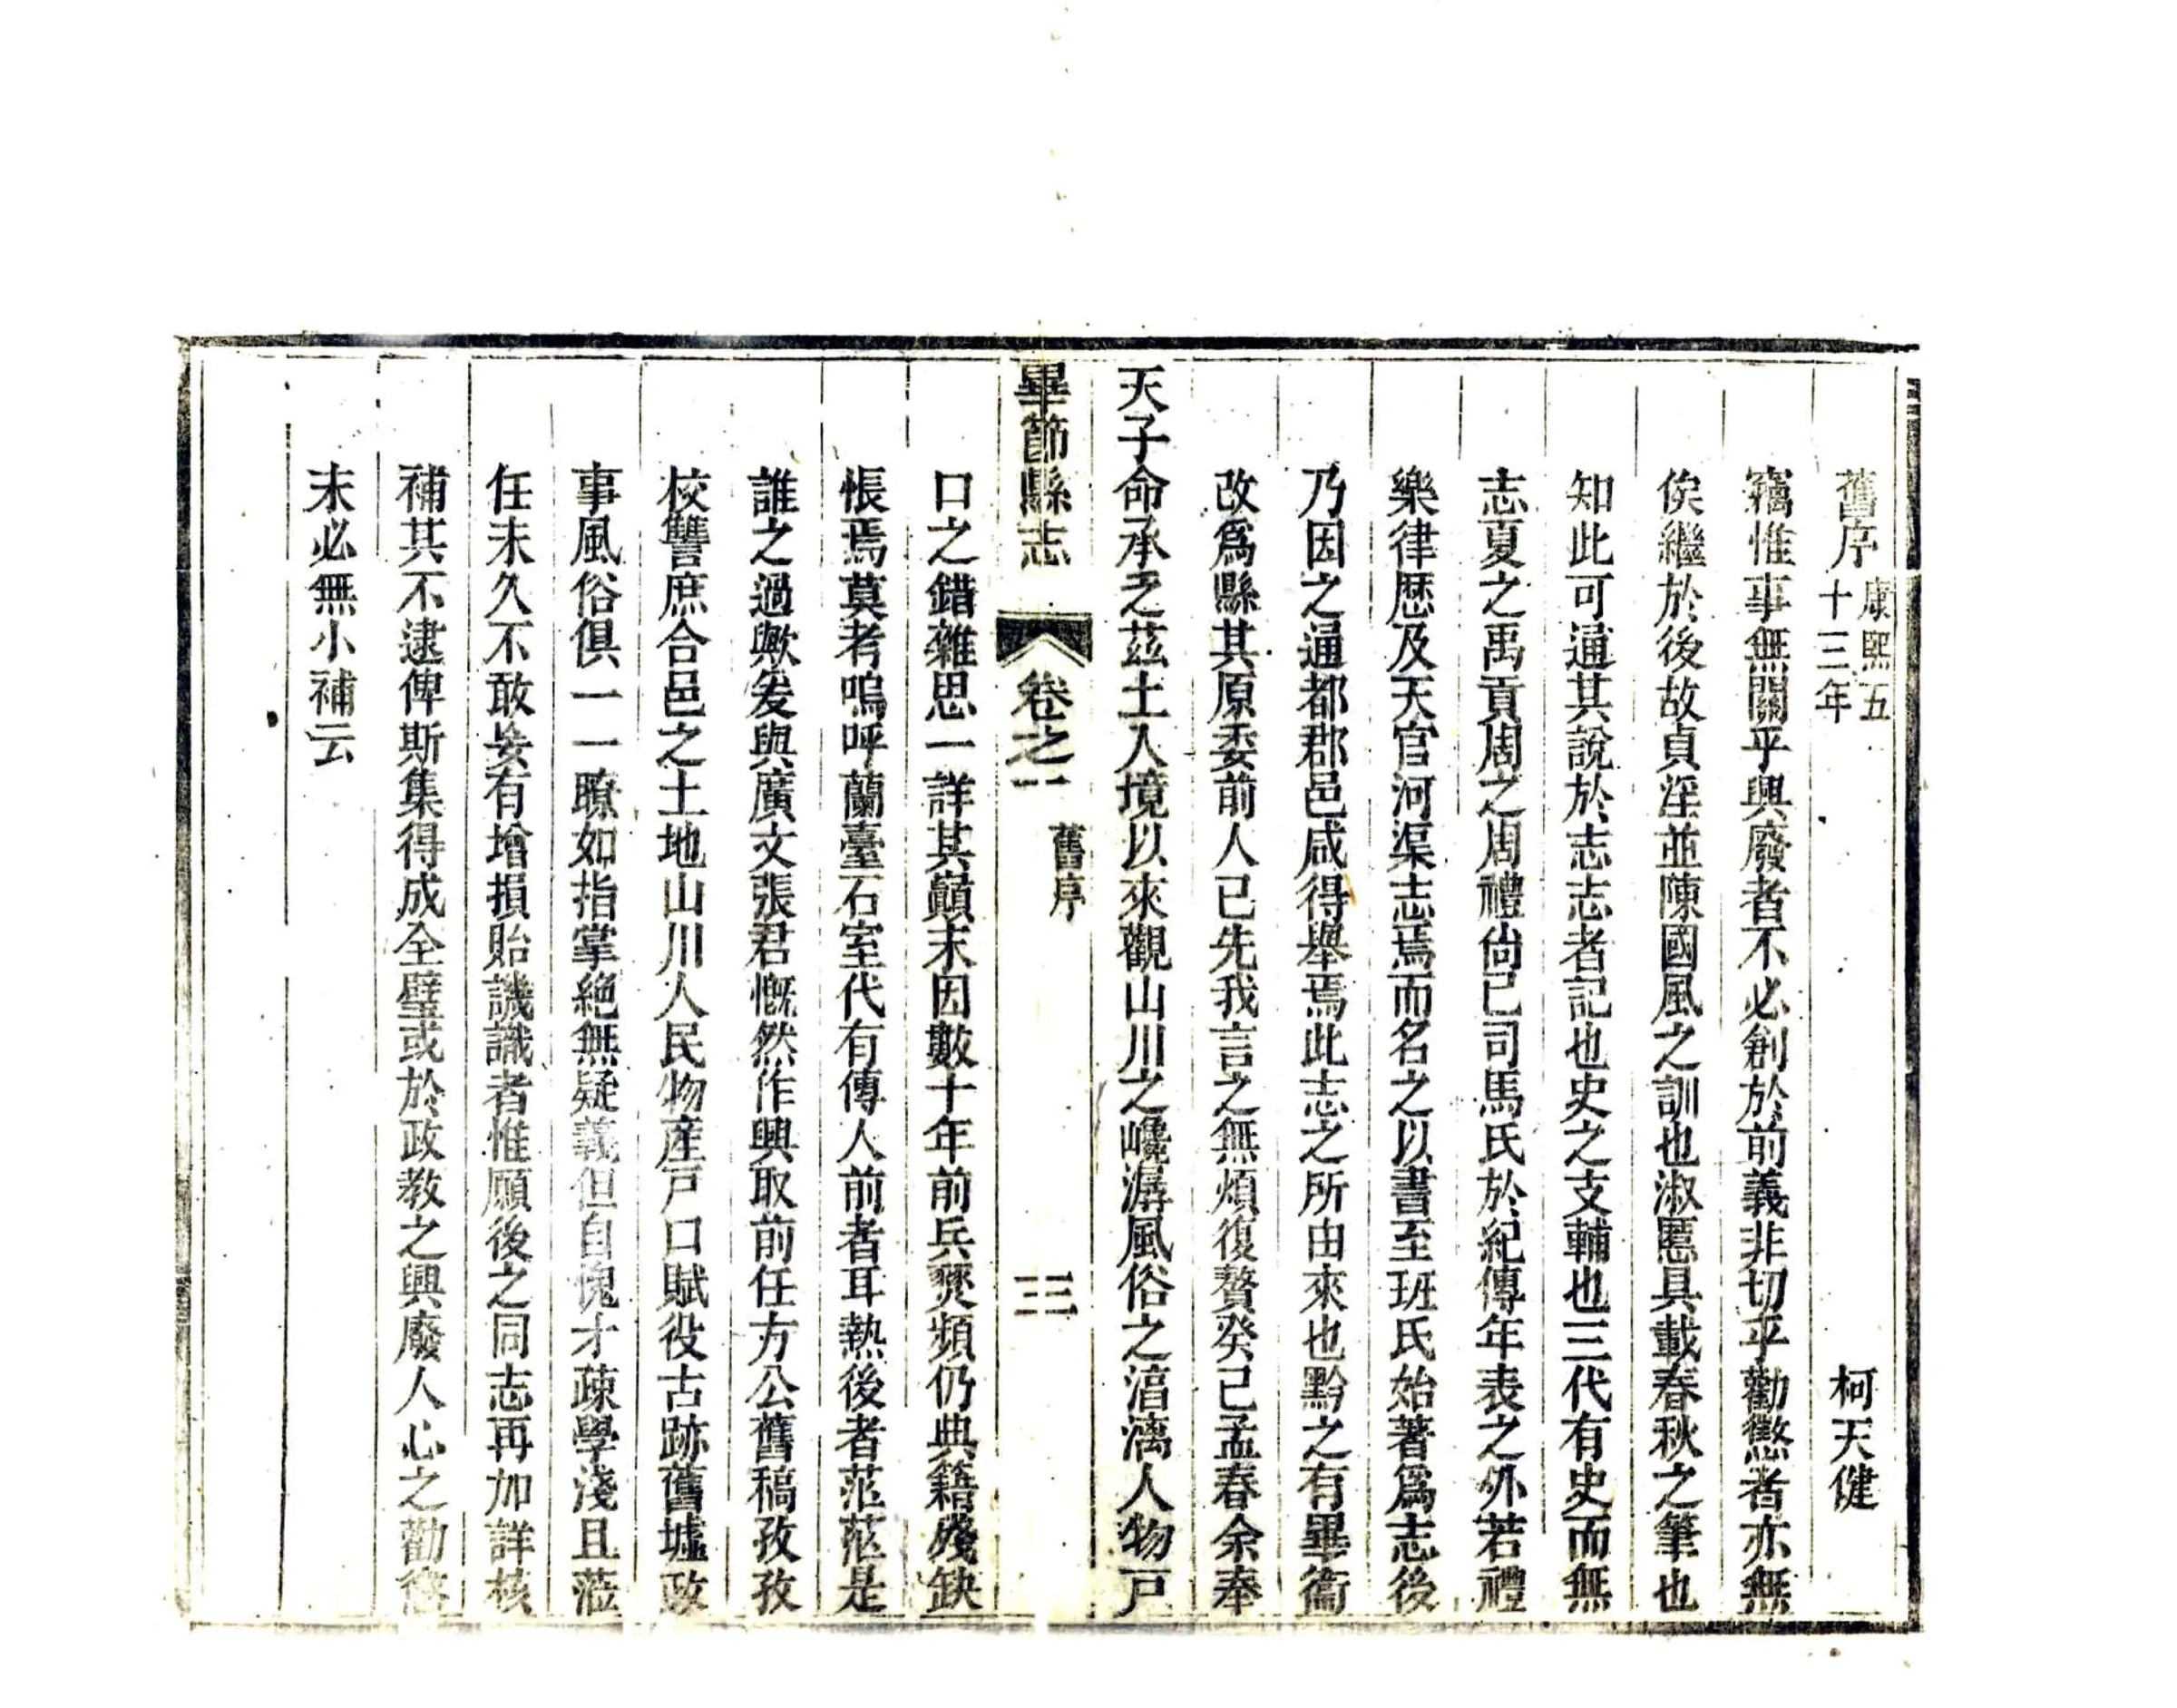 舊序 康熙五十三年 柯天健
竊惟事無關乎興廢者不必創於前義非切乎勸懲者亦無
俟繼於後故貞淫並陳國風之訓也淑慝具載春秋之筆也
知此可通其說於志志者記也史之支輔也三代有史而無
志夏之禹貢周之周禮尙已司馬氏於紀傳年表之外若禮
樂律歷及天官河渠志焉而名之以書至班氏始著爲志後
乃因之通都郡邑咸得舉焉此志之所由來也黔之有畢衞
改爲縣其原委前人已先我言之無煩復贅癸巳孟春余奉
天子命承乏茲土入境以來觀山川之巉潺風俗之湻漓人物戸
畢節縣志 卷之一 舊序 三
口之錯雜思一詳其巔末因數十年前兵燹頻仍典籍殘缺
悵焉莫考嗚呼蘭臺石室代有傳人前者耳熱後者茫茫是
誰之過歟爰與廣文張君慨然作興取前任方公舊稿孜孜
校讐庶合邑之土地山川人民物産戸口賦役古跡舊墟政
事風俗俱一一瞭如指掌絕無疑義但自愧才疎學淺且蒞
任未久不敢妄有增損貽譏識者惟願後之同志再加詳核
補其不逮俾斯集得成全璧或於政教之興廢人心之勸懲
未必無小補云